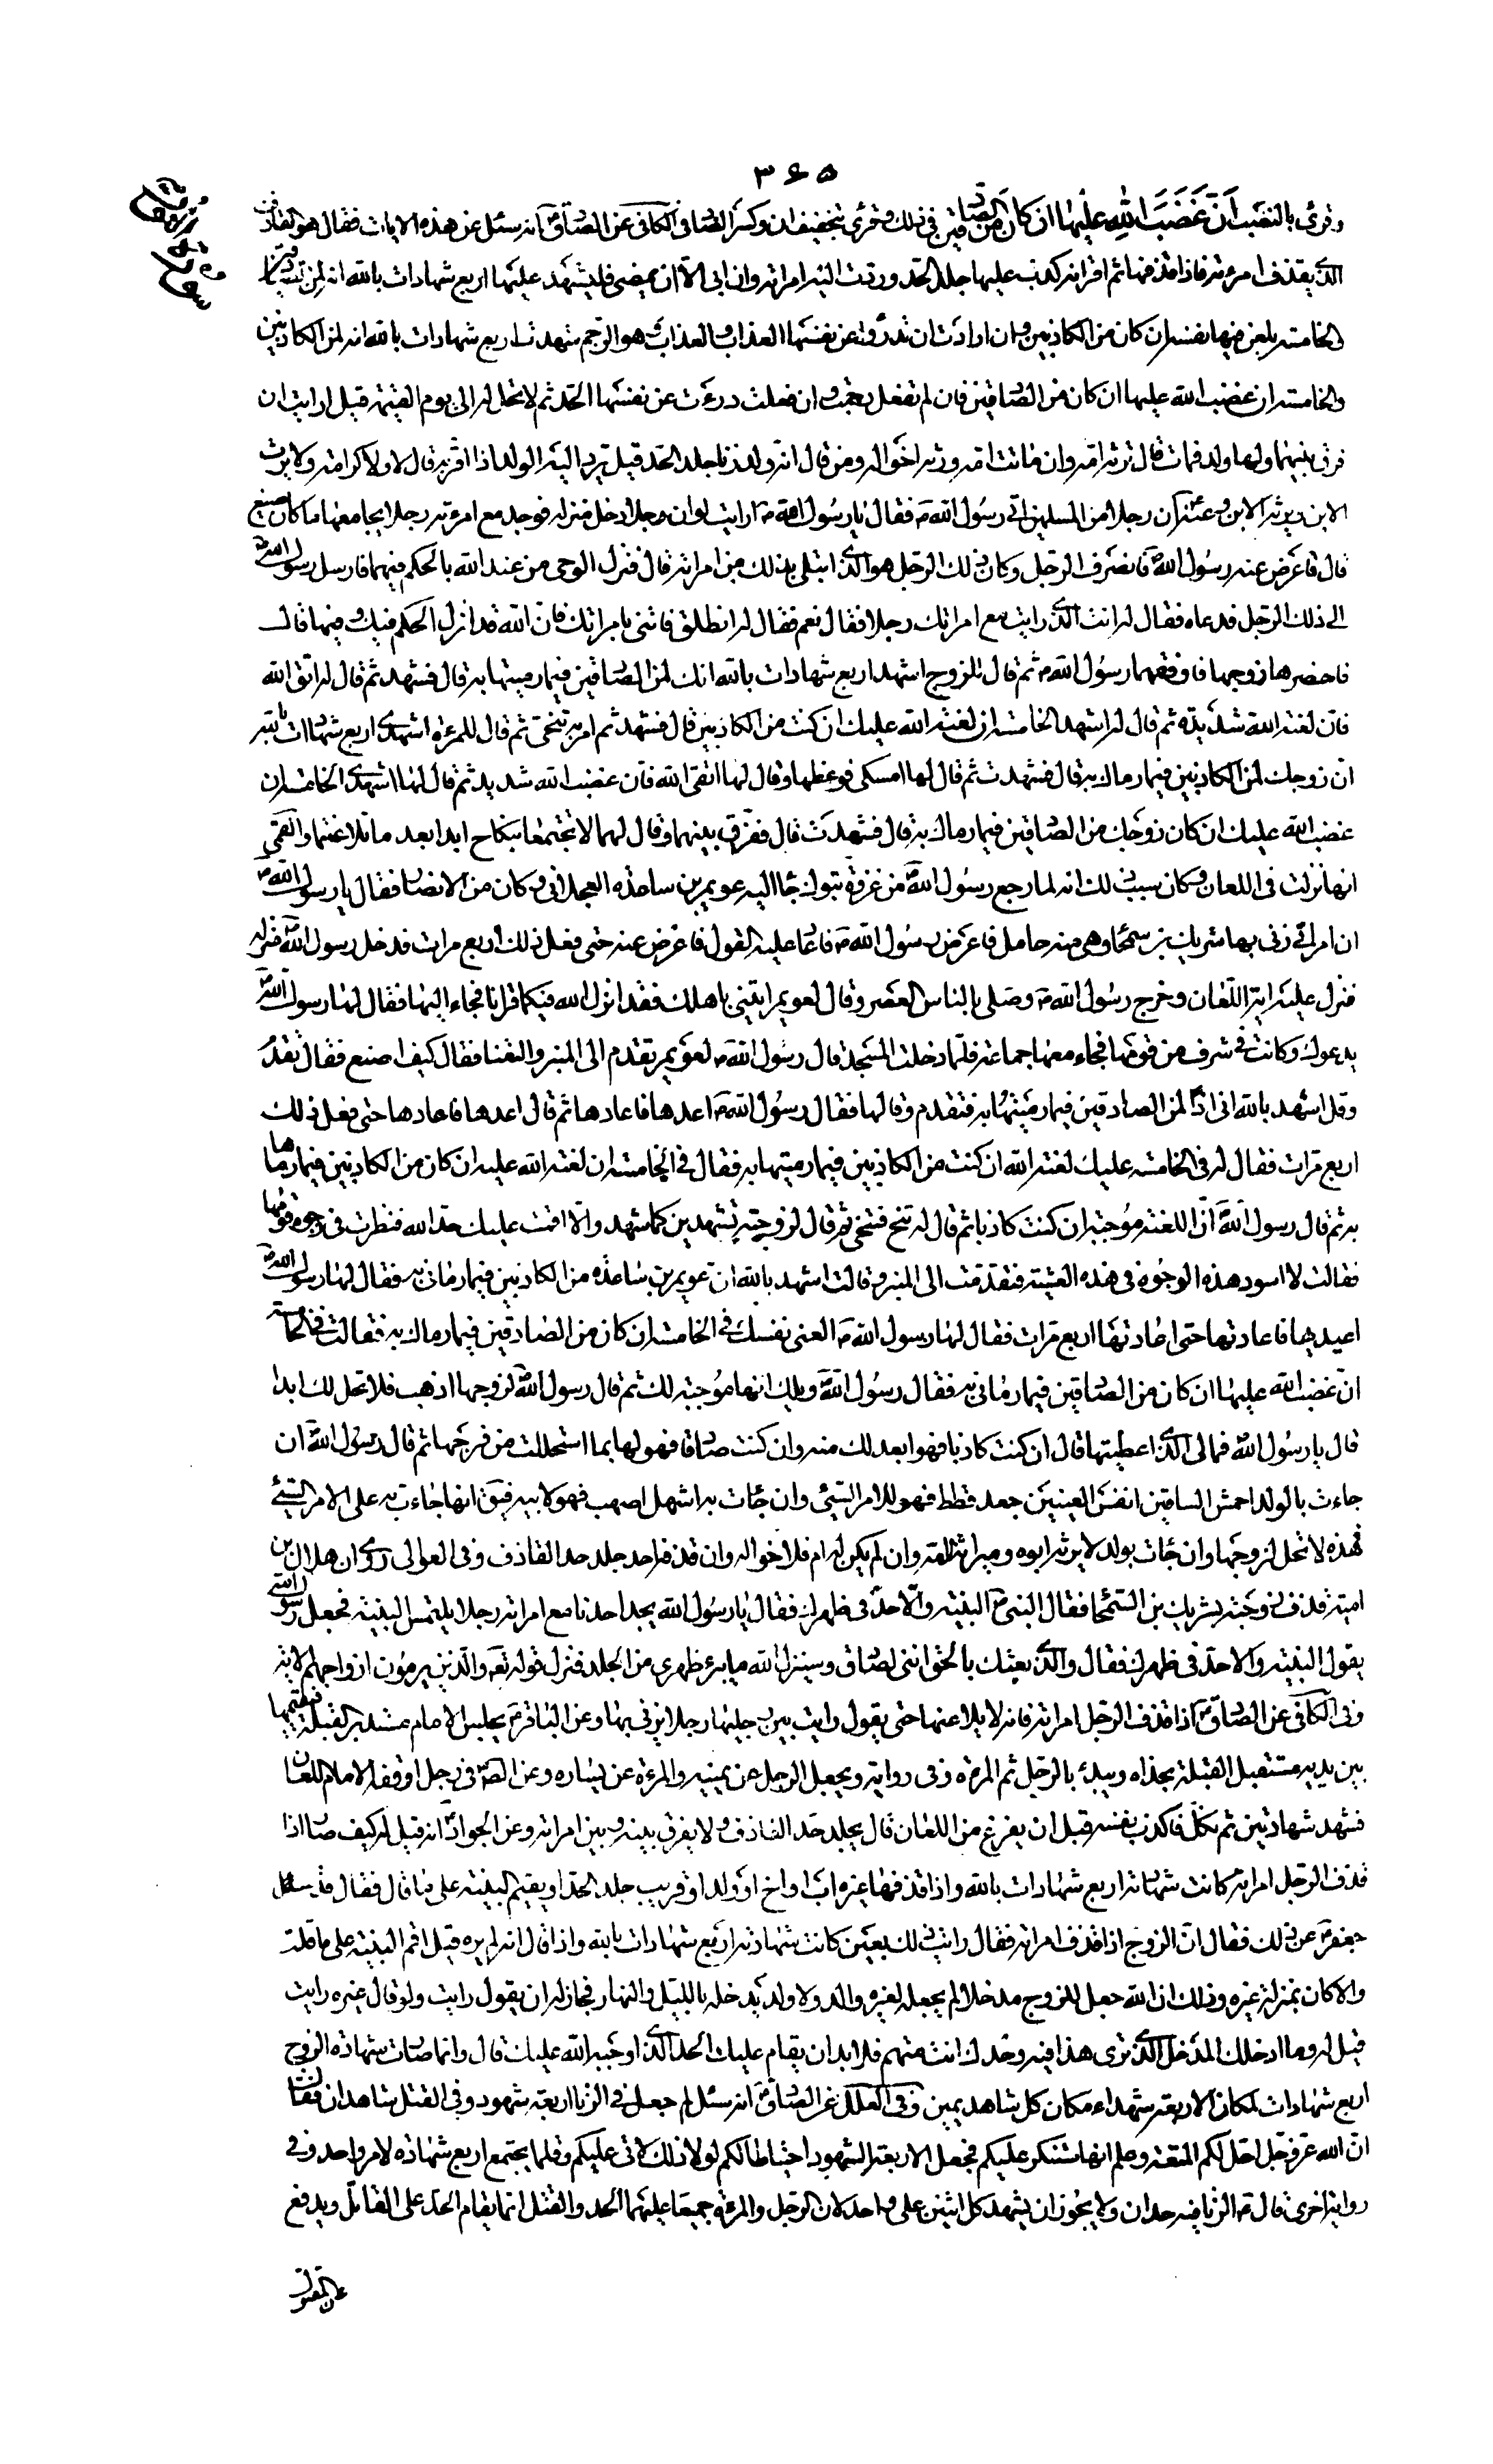 ٣٦٥
وقرئ بالنصب أَنَّ غَضَبَ اللهِ عليها ان كان من الصادقين في ذلك وقرئ بتخفيف ان وكسر الضاد في الكافي عن الصادق انه سئل عن هذه الايات فقال هو القاذف
الذي يقذف امرءته فاذا قذفها ثم اقر انه كذب عليها جلد الحد وردت اليه امراته وان ابى الا ان يمضي فليشهد عليها اربع شهادات بالله انه لمن الصادقين
والخامسة يلعن فيها نفسه ان كان من الكاذبين وان ارادت ان تدرؤا عن نفسها العذاب والعذاب هو الرجم شهدت اربع شهادات بالله انه لمن الكاذبين
والخامسة ان غضب الله عليها ان كان من الصادقين فان لم تفعل رجمت وان فعلت درءت عن نفسها الحد ثم لا تحل له الى يوم القيمة قيل ارايت ان
فرق بينهما ولها ولد فمات قال ترثه امه وان ماتت امه ورثه اخواله ومن قال انه ولد زنا جلد الحد قيل يرد اليه الولد اذا اقر به قال لا ولا كرامة ولا يرث
الابن ويرثه الابن وعنه ان رجلا من المسلمين اتى رسول الله ص فقال يا رسول الله ص ارايت لو ان رجلا دخل منزله فوجد مع امرءته رجلا يجامعها ما كان يصنع
قال فاعرض عنه رسول الله فانصرف الرجل وكان ذلك الرجل هو الذي ابتلى بذلك من امراته قال فنزل الوحي من عند الله بالحكم فيهما فارسل رسول الله
الى ذلك الرجل فدعاه فقال له انت الذي رايت مع امراتك رجلا فقال نعم فقال له انطلق فاتني بامراتك فان الله قد انزل الحكم فيك وفيها قال
فاحضرها زوجها فاوقفهما رسول الله ص ثم قال للزوج اشهد اربع شهادات بالله انك لمن الصادقين فيما رميتها به قال فشهد ثم قال له اتق الله
فان لعنة الله شديدة ثم قال له اشهد الخامسة ان لعنة الله عليك ان كنت من الكاذبين قال فشهد ثم امر به فتنحى ثم قال للمرءة اشهدي اربع شهادات بالله
ان زوجك لمن الكاذبين فيما رماك به قال فشهدت ثم قال لها امسكي فوعظها وقال لها اتقي الله فان غضب الله شديد ثم قال لها اشهدي الخامسة ان
غضب الله عليك ان كان زوجك من الصادقين فيما رماك به قال فشهدت قال ففرق بينهما وقال لهما لا تجتمعا بنكاح ابدا بعد ما تلاعنتما والقمي
انها نزلت في اللعان وكان سبب ذلك انه لما رجع رسول الله ص من غزوة تبوك جاء اليه عويمر بن ساعدة العجلاني وكان من الانصار فقال يا رسول الله ص
ان امراتي زنى بها شريك بن سمحا وهي منه حامل فاعرض رسول الله ص فاعاد عليه القول فاعرض عنه حتى فعل ذلك اربع مرات فدخل رسول الله ص منزله
فنزل عليه اية اللعان وخرج رسول الله ص وصلى بالناس العصر وقال لعويمر ايتني باهلك فقد انزل الله فيكما قرانا فجاء اليها فقال لها رسول الله
يدعوك وكانت في شرف من قومها فجاء معها جماعة فلما دخلت المسجد قال رسول الله ص لعويمر تقدم الى المنبر والتعنا فقال كيف اصنع فقال تقدم
وقل اشهد بالله اني اذا لمن الصادقين فيما رميتها به فتقدم وقالها فقال رسول الله ص اعدها فاعادها ثم قال اعدها فاعادها حتى فعل ذلك
اربع مرات فقال له في الخامسة عليك لعنة الله ان كنت من الكاذبين فيما رميتها به فقال في الخامسة ان لعنة الله عليه ان كان من الكاذبين فيما رماها
به ثم قال رسول الله ان اللعنة موجبة ان كنت كاذبا ثم قال له تنح فتنحى ثم قال لزوجته تشهدين كما شهد والا اقمت عليك حد الله فنظرت في وجوه قومها
فقالت لا اسود هذه الوجوه في هذه العشية فتقدمت الى المنبر وقالت اشهد بالله ان عويمر بن ساعدة من الكاذبين فيما رماني به فقال لها رسول الله ص
اعيديها فاعادتها حتى اعادتها اربع مرات فقال لها رسول الله ص العني نفسك في الخامسة ان كان من الصادقين فيما رماك به فقالت في الخامسة
ان غضب الله عليها ان كان من الصادقين فيما رماني به فقال رسول الله ويلك انها موجبة لك ثم قال رسول الله لزوجها اذهب فلا تحل لك ابدا
قال يا رسول الله فمالي الذي اعطيتها قال ان كنت كاذبا فهو ابعد لك منه وان كنت صادقا فهو لها بما استحللت من فرجها ثم قال رسول الله ان
جاءت بالولد احمش الساقين انفس العينين جعد قطط فهو للامر السيئ وان جاءت به اشهل اصهب فهو لابيه فيق انها جاءت به على الامر السيئ
فهذه لا تحل لزوجها وان جاءت بولد لا يرثه ابوه وميراثه لامه وان لم يكن له ام فلاخواله وان قذفه احد جلد حد القاذف وفي العوالي روى ان هلال بن
امية قذف زوجته بشريك بن السمحا فقال النبي ص البينة والا حد في ظهرك فقال يا رسول الله يجد احدنا مع امراته رجلا يلتمس البينة فجعل رسول الله
يقول البينة والا حد في ظهرك فقال والذي بعثك بالحق انني لصادق وسينزل الله ما يبرء ظهري من الجلد فنزل قوله تعه والذين يرمون ازواجهم الاية
وفي الكافي عن الصادق اذا قذف الرجل امراته فانه لا يلاعنها حتى يقول رايت بين رجليها رجلا يزني بها وعن الباقر يجلس الامام مستدبر القبلة فيقيمها
بين يديه مستقبل القبلة بحذاه ويبدء بالرجل ثم المرءة وفي رواية ويجعل الرجل عن يمينه والمرءة عن يساره وعن الص في رجل اوقفه الامام للعان
فشهد شهادتين ثم نكل فاكذب نفسه قبل ان يفرغ من اللعان قال يجلد حد القاذف ولا يفرق بينه وبين امراته وعن الجواد انه قيل له كيف صار اذا
قذف الرجل امراته كانت شهادته اربع شهادات بالله واذا قذفها غيره اب او اخ او ولد او قريب جلد الحد او يقيم البينة على ما قال فقال قد سئل
جعفر عن ذلك فقال ان الزوج اذا قذف امراته فقال رايت ذلك بعيني كانت شهادته اربع شهادات بالله واذا قال انه لم يره قيل اقم البينة على ما قلت
والا كان بمنزلة غيره وذلك ان الله جعل للزوج مدخلا لم يجعله لغيره والد ولا ولد يدخله بالليل والنهار فجاز له ان يقول رايت ولو قال غيره رايت
قيل له وما ادخلك المدخل الذي ترى هذا فيه وحدك انت متهم فلا بد ان يقام عليك الحد الذي اوجبه الله عليك قال وانما صارت شهادة الزوج
اربع شهادات لمكان الاربعة شهداء مكان كل شاهد يمين وفي العلل عن الصادق انه سئل لم جعل في الزنا اربعة شهود وفي القتل شاهدان فقال
ان الله عز وجل احل لكم المتعة وعلم انها ستنكر عليكم فجعل الاربعة الشهود احتياطا لكم لولا ذلك لاتى عليكم وقلما يجتمع اربع شهادة لامر واحد وفي
رواية اخرى قال الزنا فيه حدان ولا يجوز ان يشهد كل اثنين على واحد لان الرجل والمرءة جميعا عليهما الحد والقتل انما يقام الحد على القاتل ويدفع
عن المقتول